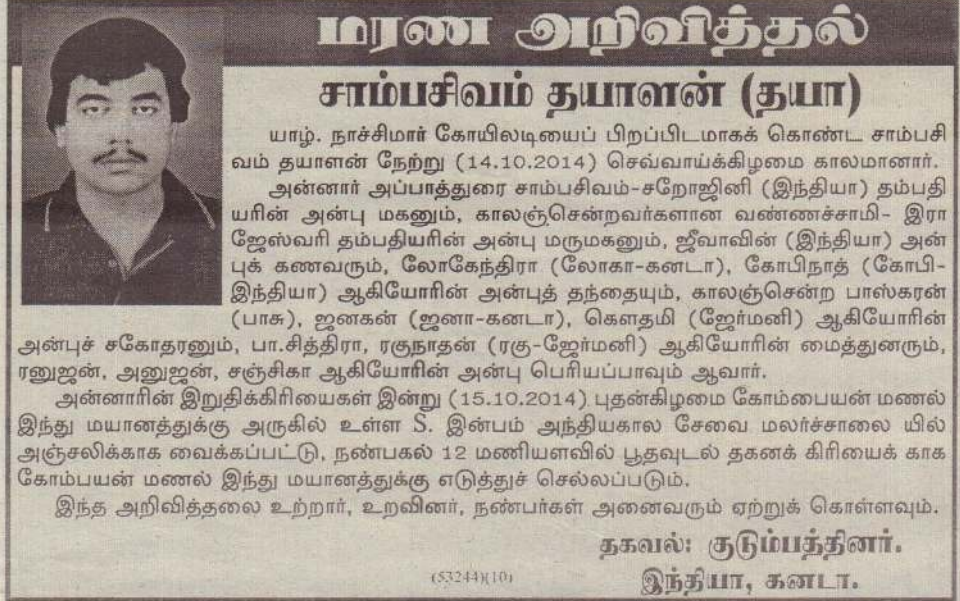 மரண அறிவித்தல்
சாம்பசிவம் தயாளன் (தயா)
யாழ். நாச்சிமார் கோயிலடியைப் பிறப்பிடமாகக் கொண்ட சாம்பசி
வம் தயாளன் நேற்று (14.10.2014) செவ்வாய்க்கிழமை காலமானார்.
அன்னார் அப்பாத்துரை சாம்பசிவம்-சறோஜினி (இந்தியா) தம்பதி
யரின் அன்பு மகனும், காலஞ்சென்றவர்களான வண்ணச்சாமி- இரா
ஜேஸ்வரி தம்பதியரின் அன்பு மருமகனும், ஜீவாவின் (இந்தியா) அன்
புக் கணவரும், லோகேந்திரா (லோகா-கனடா), கோபிநாத் (கோபி-
இந்தியா) ஆகியோரின் அன்புத் தந்தையும், காலஞ்சென்ற பாஸ்கரன்
(பாசு), ஜனகன் (ஜனா-கனடா), கௌதமி (ஜேர்மனி) ஆகியோரின்
அன்புச் சகோதரனும், பா.சித்திரா, ரகுநாதன் (ரகு-ஜேர்மனி) ஆகியோரின் மைத்துனரும்,
ரனுஜன், அனுஜன், சஞ்சிகா ஆகியோரின் அன்பு பெரியப்பாவும் ஆவார்.
அன்னாரின் இறுதிக்கிரியைகள் இன்று (15.10.2014) புதன்கிழமை கோம்பையன் மணல்
இந்து மயானத்துக்கு அருகில் உள்ள S. இன்பம் அந்தியகால சேவை மலர்ச்சாலை யில்
அஞ்சலிக்காக வைக்கப்பட்டு, நண்பகல் 12 மணியளவில் பூதவுடல் தகனக் கிரியைக் காக
கோம்பயன் மணல் இந்து மயானத்துக்கு எடுத்துச் செல்லப்படும்.
இந்த அறிவித்தலை உற்றார், உறவினர், நண்பர்கள் அனைவரும் ஏற்றுக் கொள்ளவும்.
தகவல்: குடும்பத்தினர்.
(53244)(10) இந்தியா, கனடா.